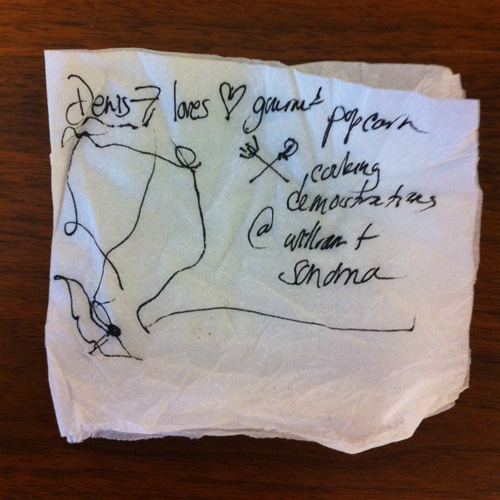 Denis 7 loves ♡ gourmet popcorn
cooking
demonstrations
@ william +
sonoma